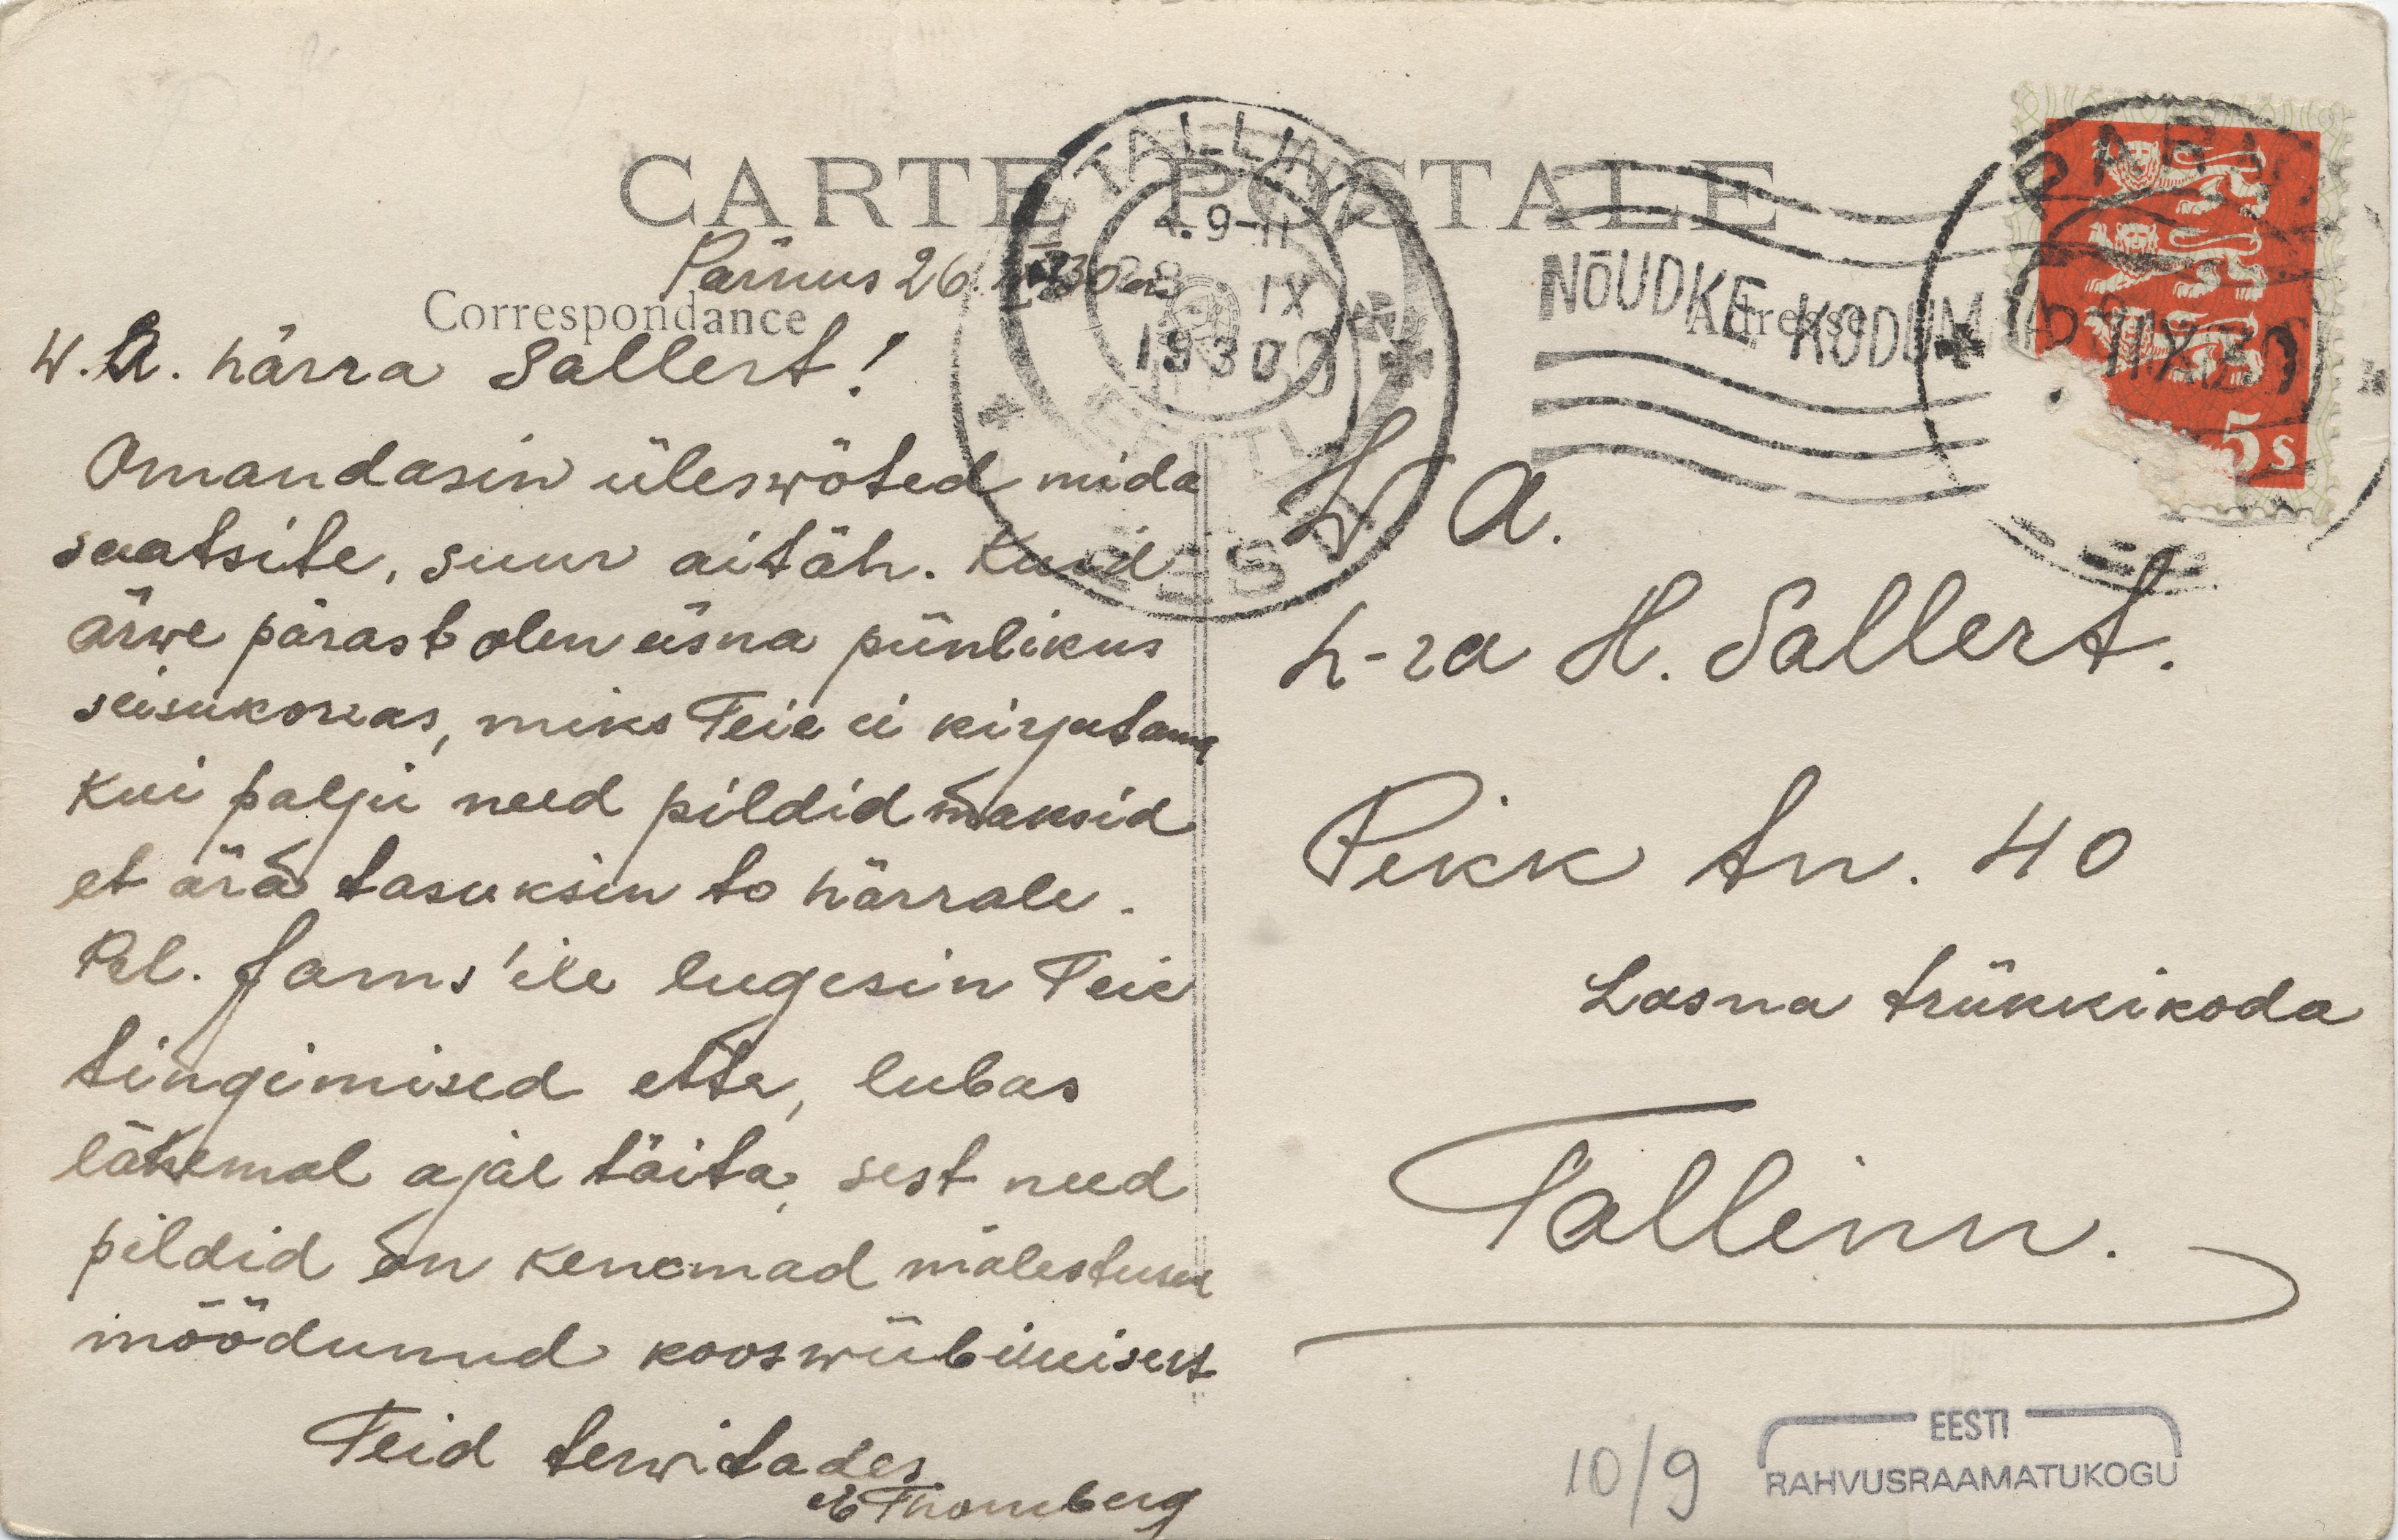 CARTE POSTALE
Correspondance
Adresse
Pärnus 26.
W. A. härra Sallert!
Omandasin üleswõted mida
saatsite, suur aitäh. Kuid
ärwe pärast olen üsna piinlikus
seisukorras, miks Teie ei kirjutanud
kui palju need pildid maksid
et ära tasuksin to härrale.
Pel. Jams'ile lugesin Teie
tingimised ette, lubas
lähemal ajal täita, sest need
pildid on kenamad mälestused
möödunud kooswiibimisest
Teid terwitades
Thomberg
TALLINN
9-11
IX
1930
EESTI
NÕUDKE KODUMA
PÄRNU
IX 30
5s
W A.
h-ra H. Sallert.
Pikk tn. 40
Lasna trükkikoda
Tallinn.
10/9
EESTI
RAHVUSRAAMATUKOGU